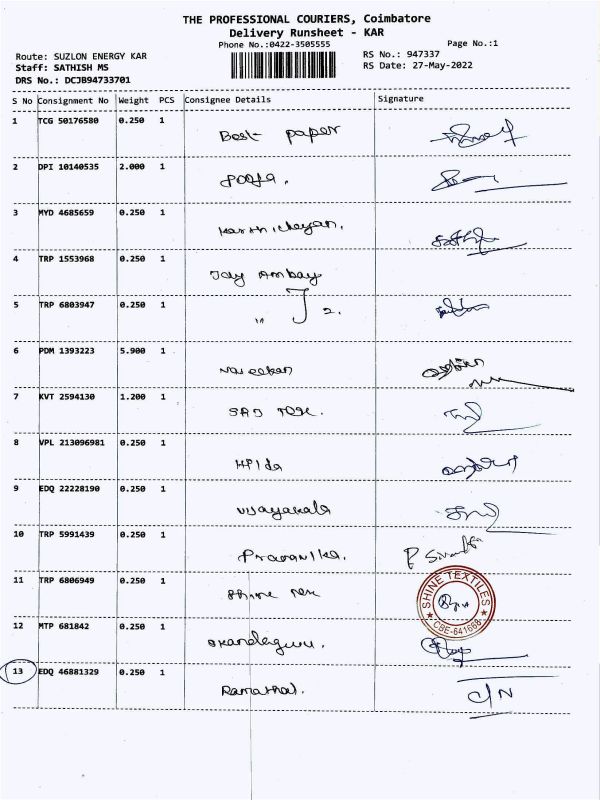 THE PROFESSIONAL COURIERS, Coimbatore
Delivery Runsheet - KAR
Phone No.:0422-3505555
Page No.:1
Route: SUZLON ENERGY KAR
RS No.: 947337
Staff: SATHISH MS
RS Date: 27-May-2022
DRS No.: DCJB94733701
S No Consignment No Weight PCS Consignee Details Signature
1 TCG 50176580 0.250 1 Best paper
2 DPI 10140535 2.000 1 Pooja.
3 MYD 4685659 0.250 1 Karthickeyan.
4 TRP 1553968 0.250 1 Jay Ambay
5 TRP 6803947 0.250 1 " 2.
6 PDM 1393223 5.900 1
7 KVT 2594130 1.200 1
8 VPL 213096981 0.250 1
9 EDQ 22228190 0.250 1 Vijayakala
10 TRP 5991439 0.250 1
11 TRP 6806949 0.250 1 Shine Tex SHINE TEXTILES
CBE-641668
12 MTP 681842 0.250 1
13 EDQ 46881329 0.250 1 Ramathal. C/N